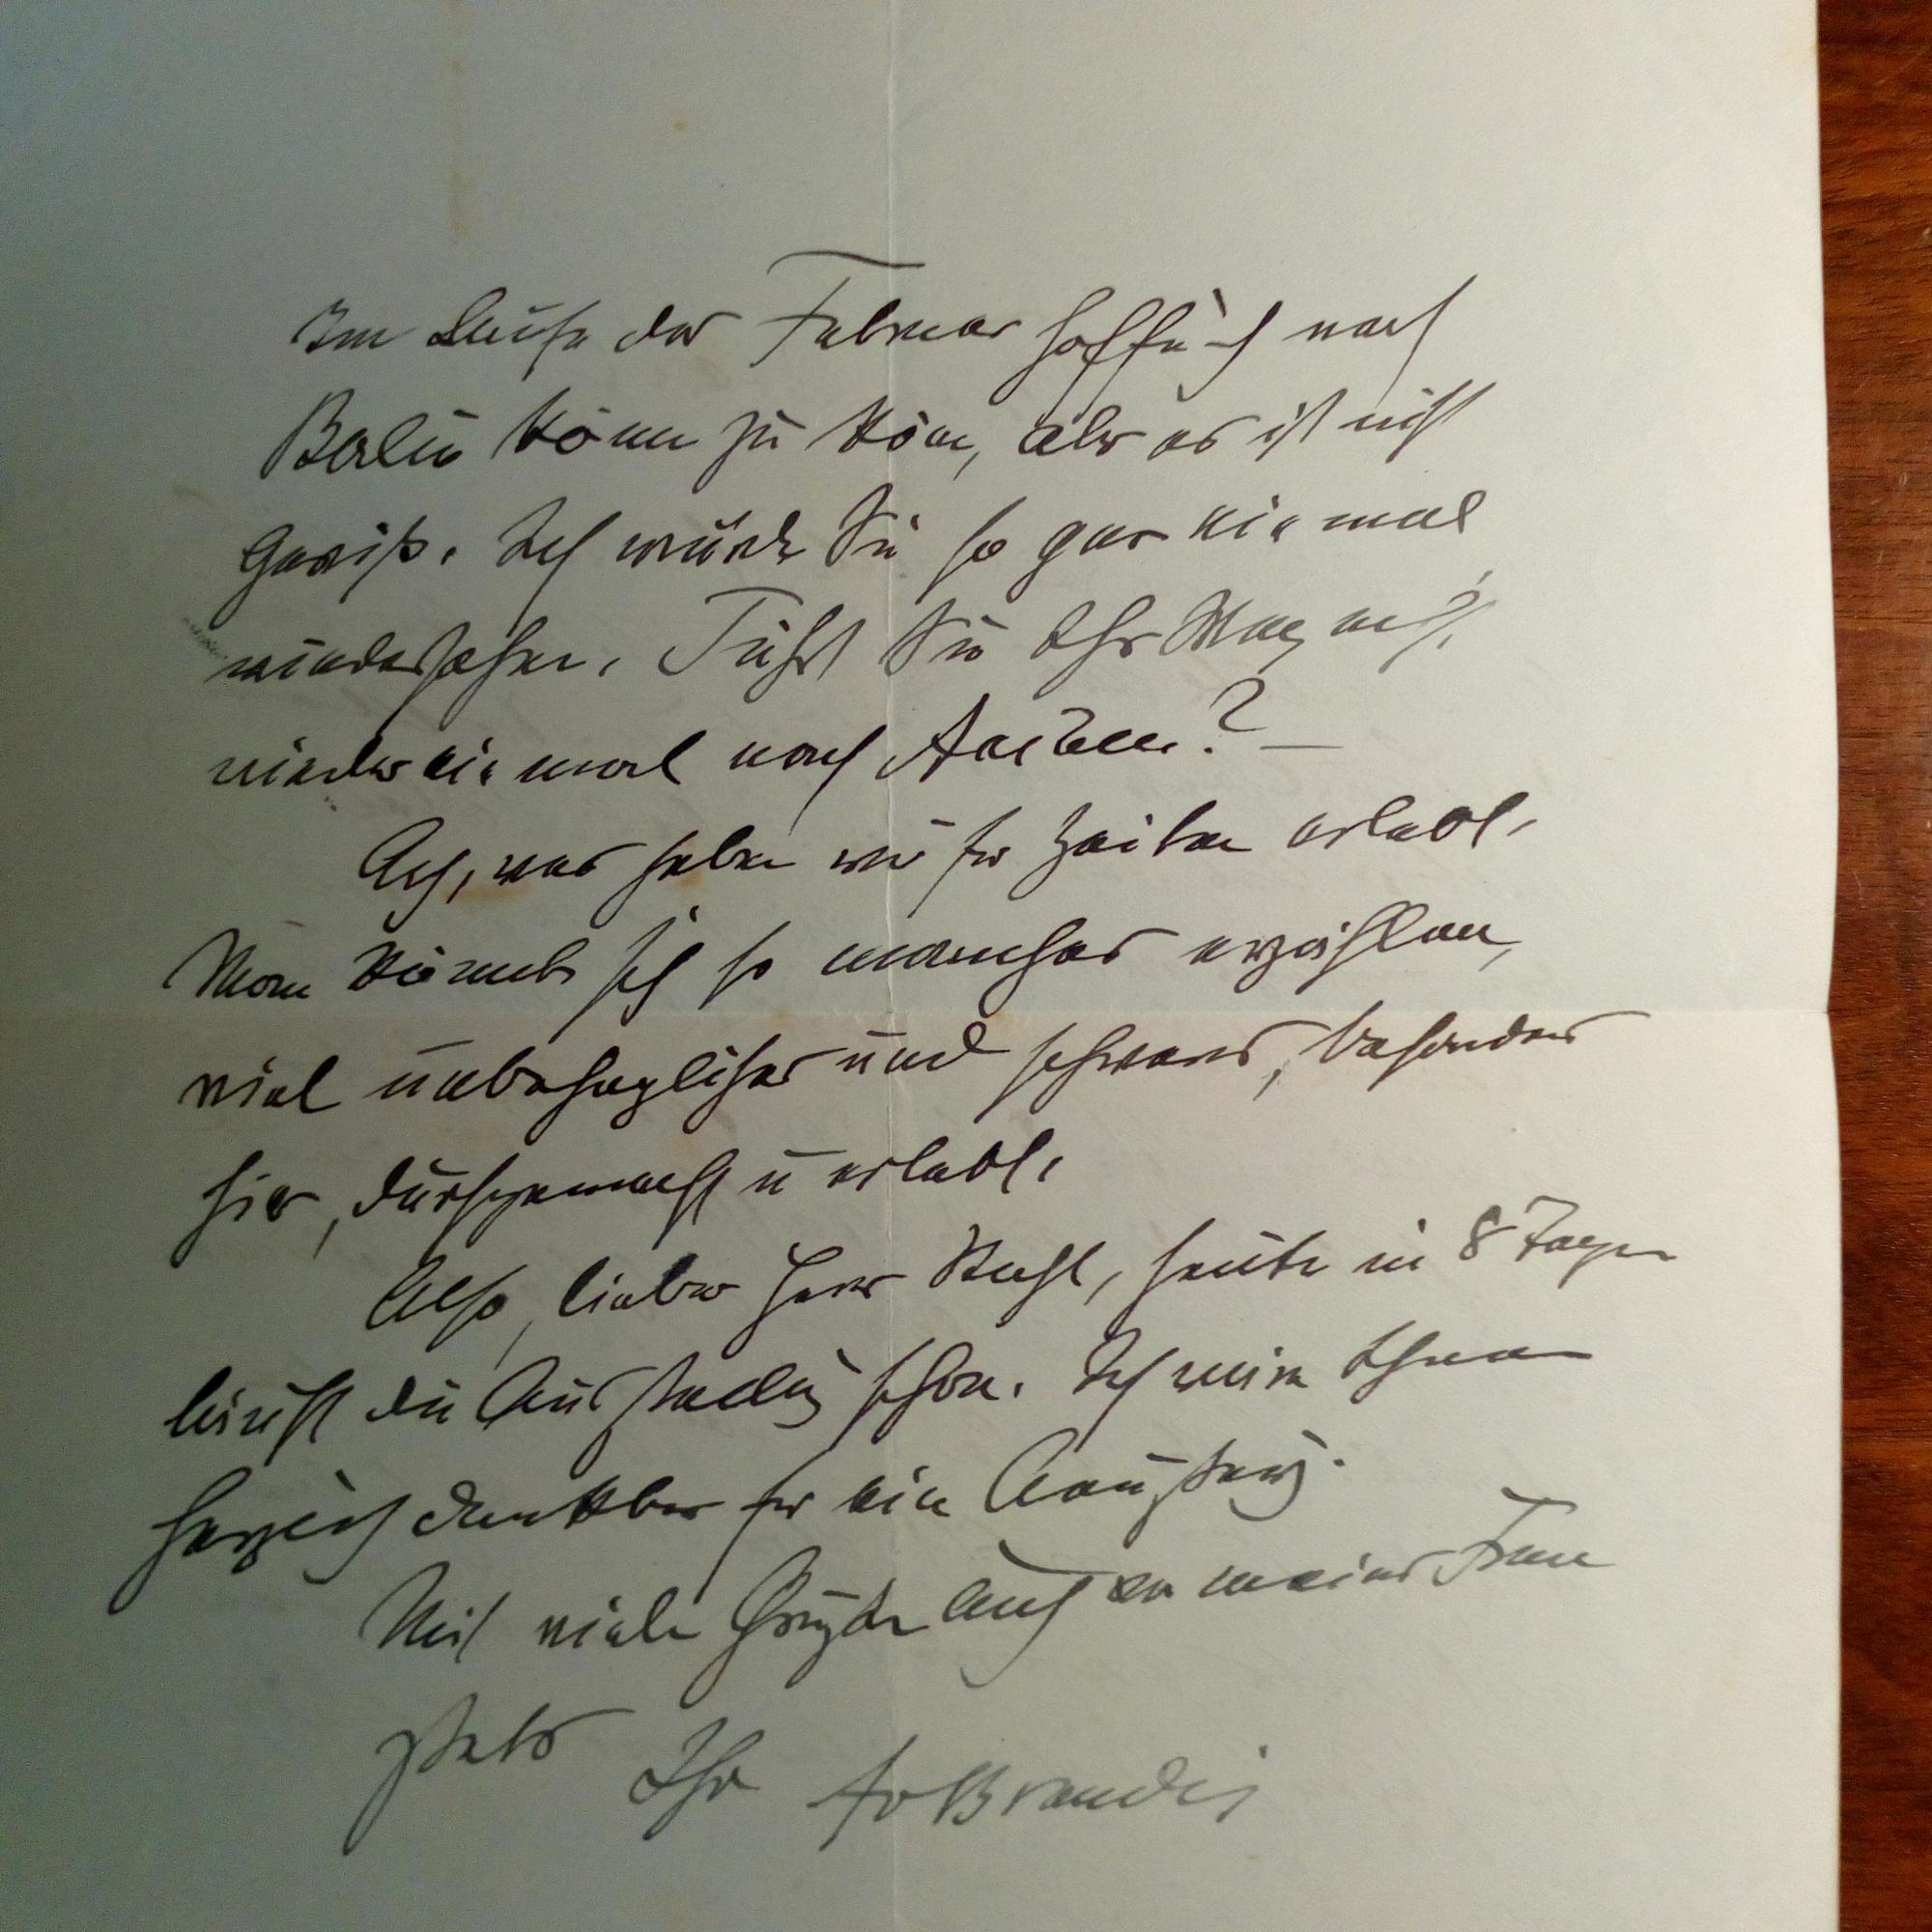 Im Laufe des Februar hoffe ich nach
Berlin kom̄en zu kön̄en, aber es ist nicht
gewiß. Ich würde Sie so gern einmal
wiedersehen. Führt Sie Ihr Weg nicht
wieder einmal nach Aachen? —
Ach, was haben wir für Zeiten erlebt.
Man könnte sich so manches erzählen,
viel unbehagliches und schweres, besonders
hier, durchgemacht u erlebt.
Also, lieber Herr, heute in 8 Tagen
läuft die Ausstellung schon. Ich wäre Ihnen
herzlich dankbar für eine Äußerung.
Mit vielen Grüßen auch von meiner Frau
stets Ihr AvBrandis